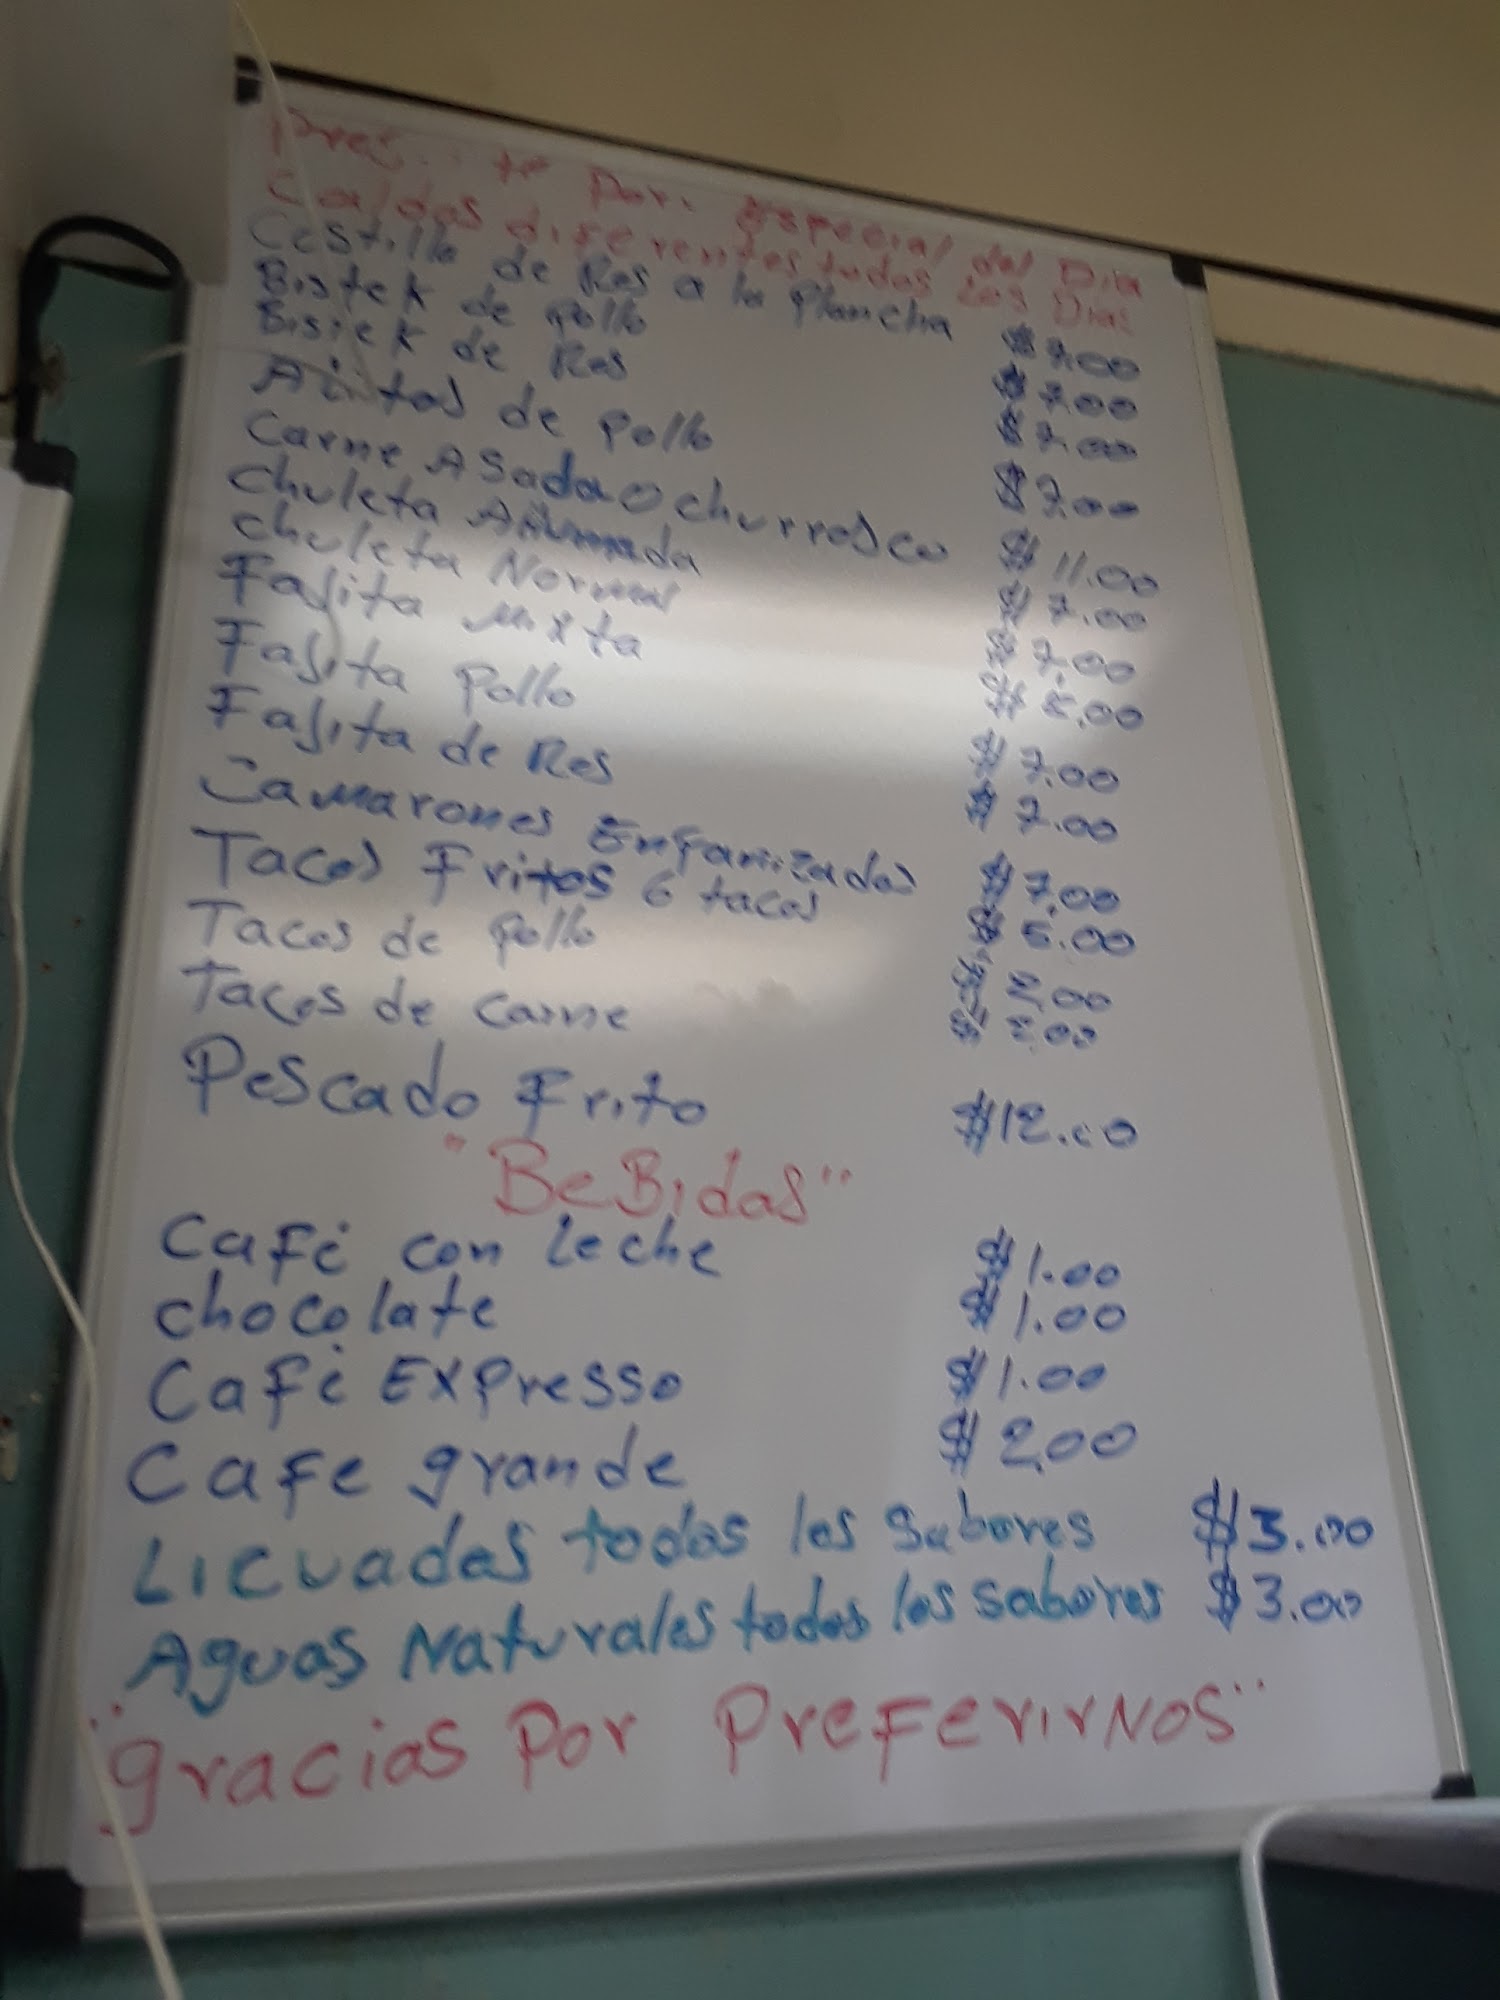 Por. Especial del Dia
Caldos diferentes todos Los Dias
Costilla de Res a la Plancha $7.00
Bistek de pollo $7.00
Bistek de Res $7.00
Alitas de pollo $7.00
Carne Asada o churrosco $11.00
Chuleta Ahumada $7.00
chuleta Normal $7.00
Fajita Mixta
Fajita pollo $7.00
Fajita de Res $7.00
Camarones $7.00
Tacos Fritos 6 tacos $5.00
Tacos de pollo $2.00
Tacos de carne $2.00
Pescado Frito $12.00
"BeBidas"
Café con leche $1.00
chocolate $1.00
Café Expresso $1.00
Cafe grande $2.00
Licuadas todos los sabores $3.00
Aguas Naturales todos los sabores $3.00
"gracias Por PreFerirNos"